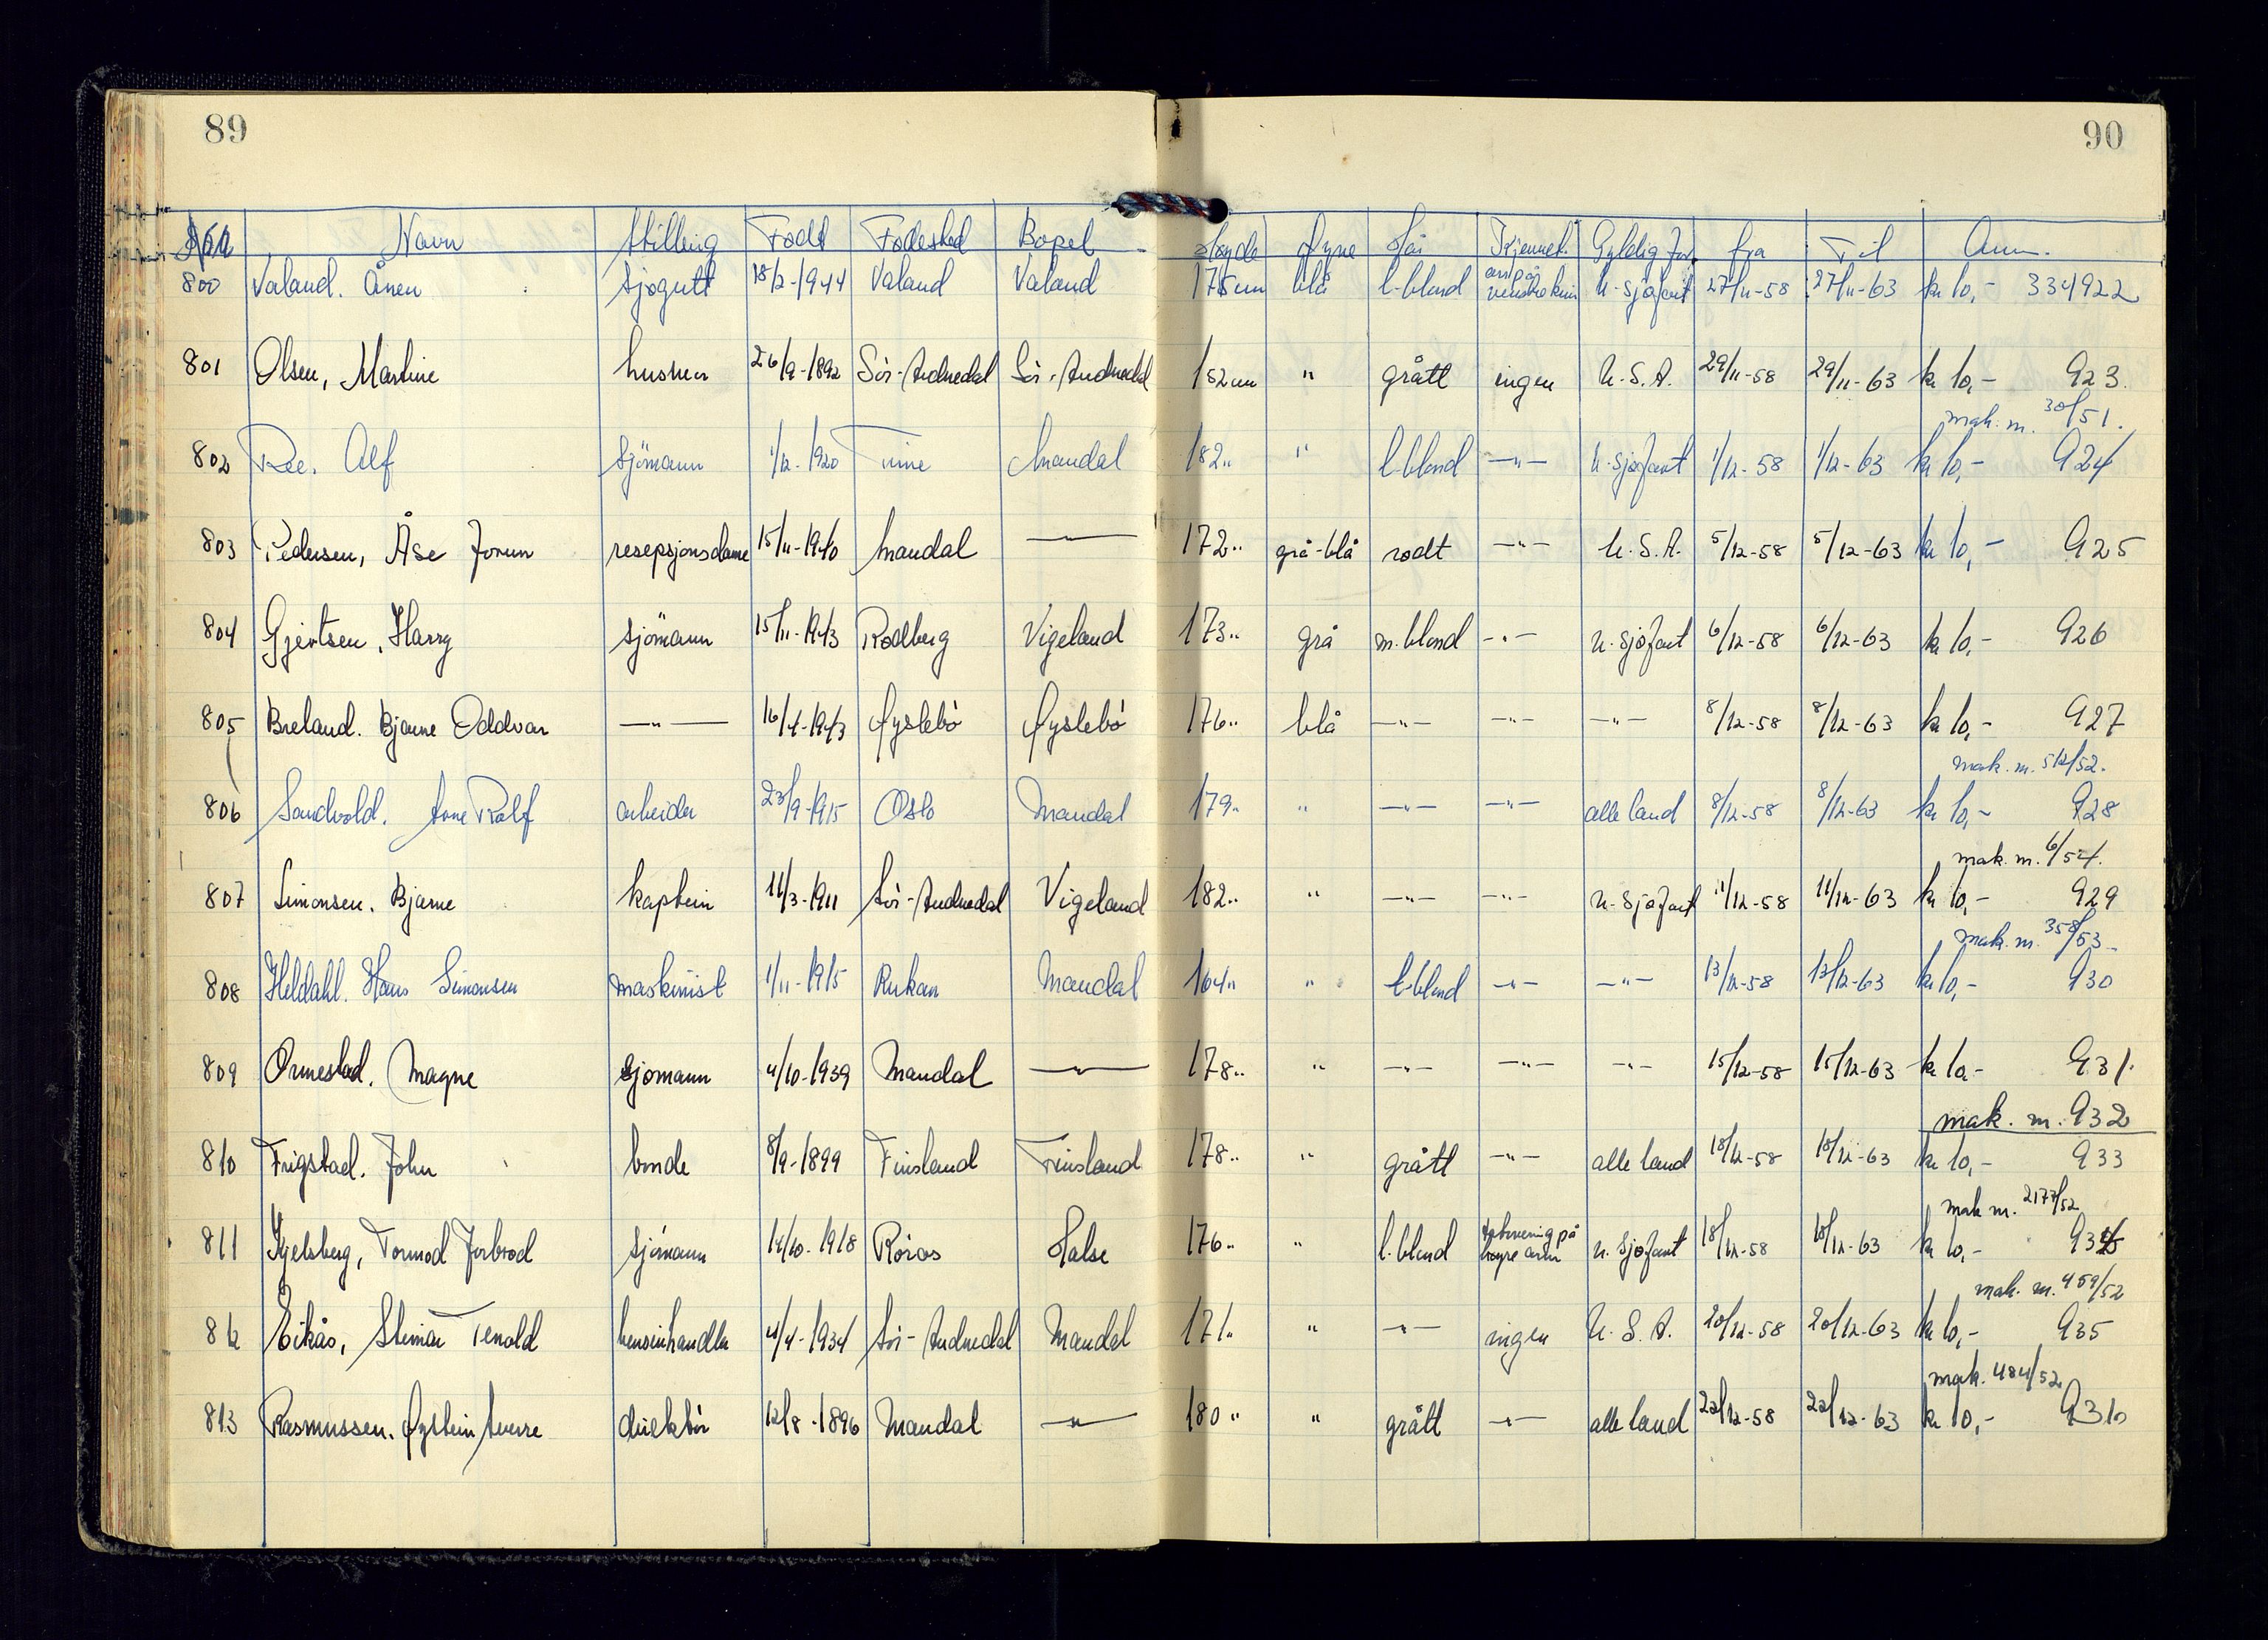 89
90
Navn Stilling Født Fødested Bopel Høyde Øyne Hår Kjennet. Gyldig for fra Til Anm.
800 Valand. Ånen sjøgutt 18/2-1944 Valand Valand 175 cm blå l-blond arr på venstre kinn u-sjøfart 27/11-58 27/11-63 kr 10,- 334922
801 Olsen, Martine husmor 26/9-1892 Sör-Audnedal Sör-Audnedal 152 cm " grått ingen U.S.A. 29/11-58 29/11-63 kr 10,- 923.
mak. m. 30/51.
802 Roe. Alf sjömann 1/12-1920 Time Mandal 182 " " l-blond -"- u-sjøfart 1/12-58 1/12-63 kr 10,- 924
803 Pedersen, Åse Jorun resepsjonsdame 15/11-1940 Mandal -"- 172 " grå-blå rødt -"- U.S.A. 5/12-58 5/12-63 kr 10,- 925
804 Gjertsen, Harry sjömann 15/11-1943 Rødberg Vigeland 173 " grå m.blond -"- u-sjøfart 6/12-58 6/12-63 kr 10,- 926
805 Breland. Bjarne Oddvar -"- 16/4-1943 Øyslebö Øyslebö 176 " blå -"- -"- -"- 8/12-58 8/12-63 kr 10,- 927
mak. m. 512/52.
806 Sandvold. Arne Rolf arbeider 23/9-1915 Oslo Mandal 179 " " -"- -"- alle land 8/12-58 8/12-63 kr 10,- 928
mak. m. 6/54.
807 Simonsen. Bjarne kaptein 11/3-1911 Sör-Audnedal Vigeland 182 " " -"- -"- u-sjøfart 11/12-58 11/12-63 kr 10,- 929
mak. m. 358/53
808 Heldahl. Hans Simonsen maskinist 1/11-1915 Rukan Mandal 164 " " l-blond -"- -"- 13/12-58 13/12-63 kr 10,- 930
809 Ormestad. Magne sjømann 4/10-1939 Mandal -"- 178 " " -"- -"- -"- 15/12-58 15/12-63 kr 10,- 931.
mak. m. 932
810 Frigstad. John bonde 8/9-1899 Finsland Finsland 178 " " grått -"- alle land 18/12-58 18/12-63 kr 10,- 933
mak m. 2177/52
811 Tormod sjómann 14/10-1918 Röros Halse 176 " " l.blond tatovering på høyre arm u.sjøfart 18/12-58 18/12-63 kr 10,- 934
mak. m. 459/52
812 Eikås, Steinar Tenold bensinhandler 4/4-1934 Sör-Audnedal Mandal 171 " " -"- ingen U.S.A. 20/12-58 20/12-63 kr 10,- 935
mak. 484/52
813 Rasmussen. Øystein Sverre direktör 12/8-1896 Mandal -"- 180 " " grått -"- alle land 22/12-58 22/12-63 kr 10,- 936